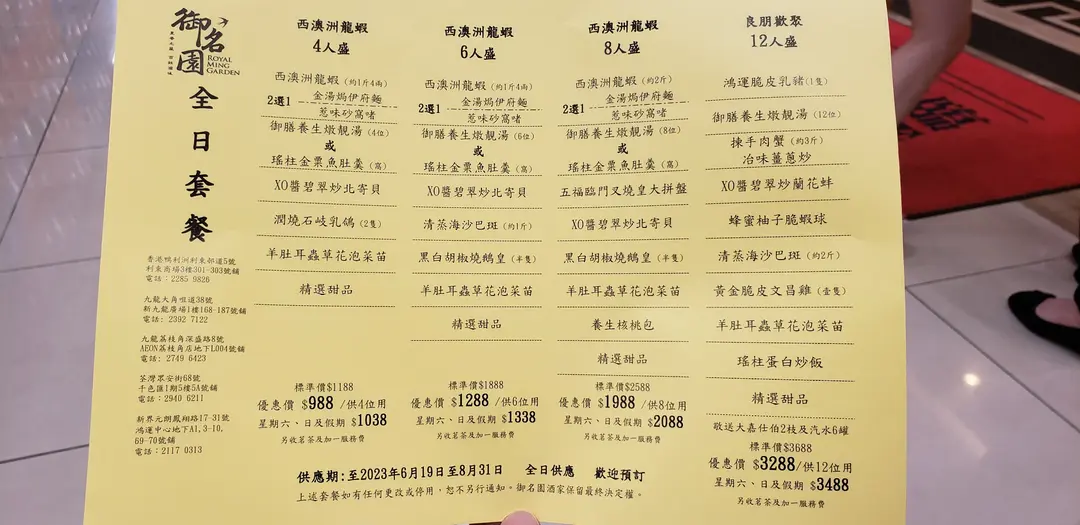 御名園
ROYAL
MING
GARDEN
全日套餐
香港鴨利洲利東邨道5號
利東商場3樓301-303號舖
電話：2285 9826
九龍大角咀道38號
新九龍廣場1樓168-187號舖
電話: 2392 7122
九龍荔枝角深盛路8號
AEON荔枝角店地下L004號舖
電話: 2749 6423
荃灣眾安街68號
千色匯1期5樓5A號舖
電話：2940 6211
新界元朗鳳翔路17-31號
鴻運中心地下A1,3-10,
69-70號舖
電話：2117 0313
西澳洲龍蝦
4人盛
西澳洲龍蝦 (約1斤4兩)
2選1
金湯焗伊府麵
惹味砂窩啫
御膳養生燉靚湯 (4位)
或
瑤柱金粟魚肚羹 (窩)
XO醬碧翠炒北寄貝
潤燒石岐乳鴿 (2隻)
羊肚耳蟲草花泡菜苗
精選甜品
標準價$1188
優惠價 $988 /供4位用
星期六、日及假期 $1038
另收茗茶及加一服務費
西澳洲龍蝦
6人盛
西澳洲龍蝦 (約1斤4兩)
2選1
金湯焗伊府麵
惹味砂窩啫
御膳養生燉靚湯 (6位)
或
瑤柱金粟魚肚羹 (窩)
XO醬碧翠炒北寄貝
清蒸海沙巴斑 (約1斤)
黑白胡椒燒鵝皇 (半隻)
羊肚耳蟲草花泡菜苗
精選甜品
標準價$1888
優惠價 $1288 /供6位用
星期六、日及假期 $1338
另收茗茶及加一服務費
西澳洲龍蝦
8人盛
西澳洲龍蝦 (約2斤)
2選1
金湯焗伊府麵
惹味砂窩啫
御膳養生燉靚湯 (8位)
或
瑤柱金粟魚肚羹 (窩)
五福臨門叉燒皇大拼盤
XO醬碧翠炒北寄貝
黑白胡椒燒鵝皇 (半隻)
羊肚耳蟲草花泡菜苗
養生核桃包
精選甜品
標準價$2588
優惠價 $1988 /供8位用
星期六、日及假期 $2088
另收茗茶及加一服務費
良朋歡聚
12人盛
鴻運脆皮乳豬 (1隻)
御膳養生燉靚湯 (12位)
揀手肉蟹 (約3斤)
冶味薑蔥炒
XO醬碧翠炒蘭花蚌
蜂蜜柚子脆蝦球
清蒸海沙巴斑 (約2斤)
黃金脆皮文昌雞 (壹隻)
羊肚耳蟲草花泡菜苗
瑤柱蛋白炒飯
精選甜品
敬送大嘉仕伯2枝及汽水6罐
標準價$3688
優惠價 $3288/供12位用
星期六、日及假期 $3488
另收茗茶及加一服務費
供應期：至2023年6月19日至8月31日 全日供應 歡迎預訂
上述套餐如有任何更改或停用，恕不另行通知。御名園酒家保留最終決定權。